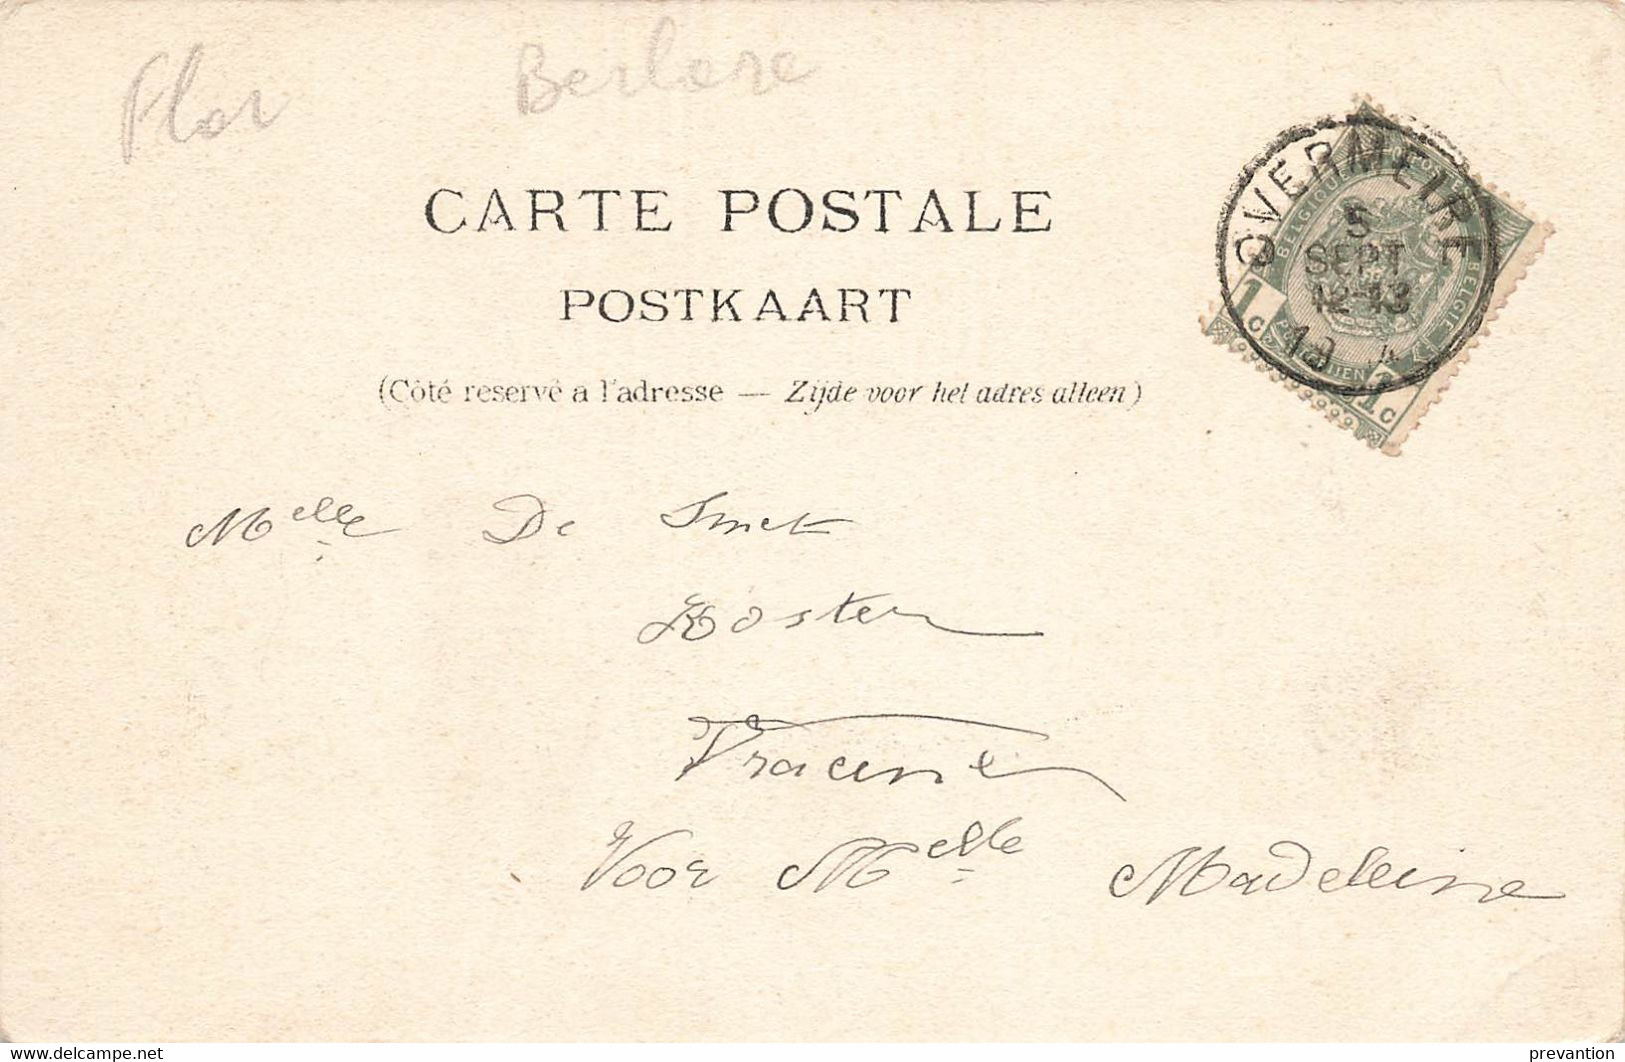 Flor Berlere
CARTE POSTALE
POSTKAART
(Côté reservé a l'adresse — Zijde voor het adres alleen)
OVERMEIRE
5
SEPT
12-13
BELGIQUE
POSTES
BELGIE
1 c
1 c
Melle De Smet
Koster
Voor Melle Madeleine
https://www.delcampe.net
prevantion